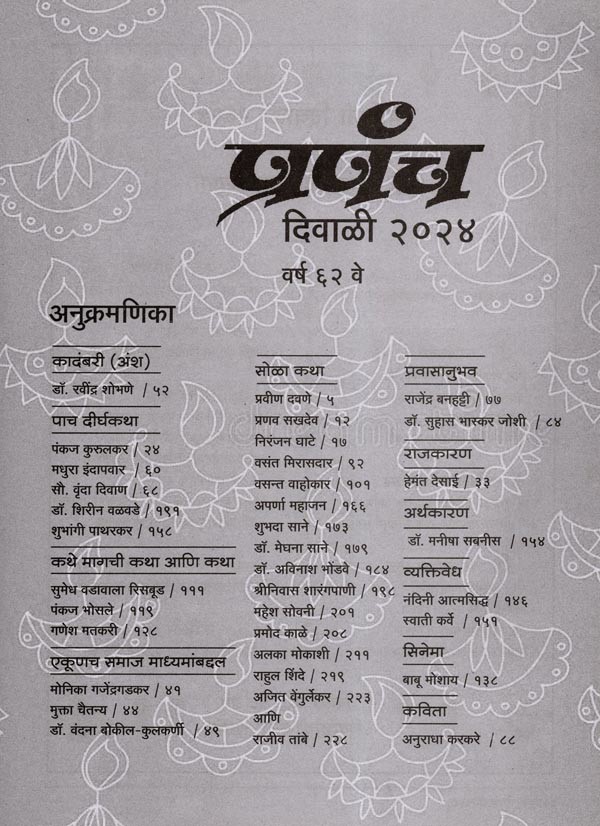 प्रपंच
दिवाळी २०२४
वर्ष ६२ वे
अनुक्रमणिका
कादंबरी (अंश)
डॉ. रवींद्र शोभणे / ५२
पाच दीर्घकथा
पंकज कुरुलकर / २४
मधुरा इंदापवार / ६०
सौ. वृंदा दिवाण / ६८
डॉ. शिरीन वळवडे / १९१
शुभांगी पाथरकर / १५८
कथे मागची कथा आणि कथा
सुमेध वडावाला रिसबूड / १११
पंकज भोसले / ११९
गणेश मतकरी / १२८
एकूणच समाज माध्यमांबद्दल
मोनिका गजेंद्रगडकर / ४१
मुक्ता चैतन्य / ४४
डॉ. वंदना बोकील-कुलकर्णी / ४९
सोळा कथा
प्रवीण दवणे / ५
प्रणव सखदेव / १२
निरंजन घाटे / १७
वसंत मिरासदार / ९२
वसन्त वाहोकार / १०१
अपर्णा महाजन / १६६
शुभदा साने / १७३
डॉ. मेघना साने / १७९
डॉ. अविनाश भोंडवे / १८४
श्रीनिवास शारंगपाणी / १९८
महेश सोवनी / २०१
प्रमोद काळे / २०८
अलका मोकाशी / २११
राहुल शिंदे / २१९
अजित वेंगुर्लेकर / २२३
आणि
राजीव तांबे / २२८
प्रवासानुभव
राजेंद्र बनहट्टी / ७७
डॉ. सुहास भास्कर जोशी / ८४
राजकारण
हेमंत देसाई / ३३
अर्थकारण
डॉ. मनीषा सबनीस / १५४
व्यक्तिवेध
नंदिनी आत्मसिद्ध / १४६
स्वाती कर्वे / १५१
सिनेमा
बाबू मोशाय / १३८
कविता
अनुराधा करकरे / ८८